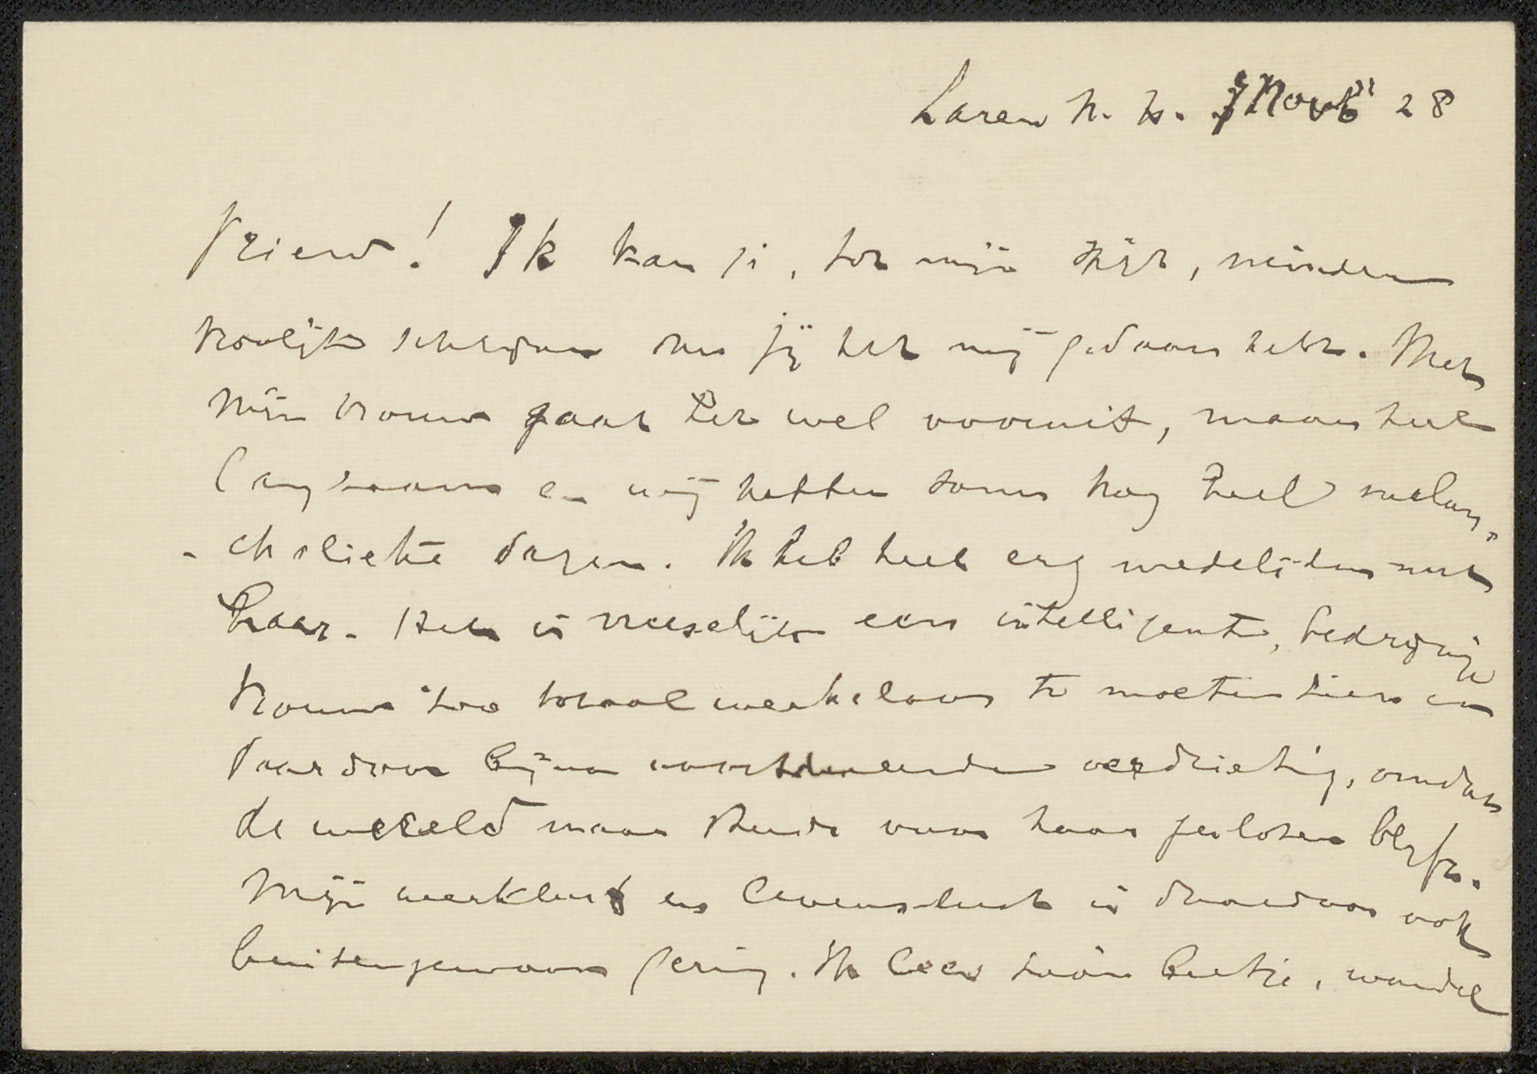 Laren N. H. 7 Novb 28
Vriend! Ik kan je, tot mijn spijt, minder
vroolijk schrijven dan jij het mij gedaan hebt. Met
mijn vrouw gaat het wel vooruit, maar heel
langzaam en wij hebben soms nog heel melan-
-cholieke dagen. Ik heb heel erg medelijden met
haar. Het is vreeselijk een intelligente, bedrijvige
vrouw zoo totaal werkeloos te moeten zien en
daardoor bijna voortdurend verdrietig, omdat
de wereld maar steeds voor haar gesloten blijft.
Mijn werklust en levenslust is daardoor ook
buitengewoon gering. Ik lees zoo'n beetje, wandel